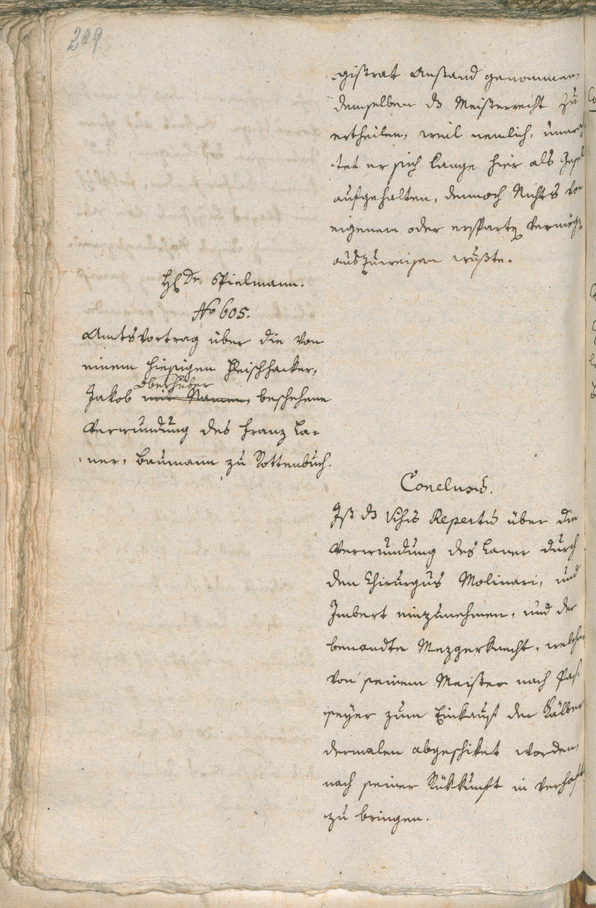 209
gistrat Anstand genommen
demselben ds Meisterrecht zu
ertheilen, weil nemlich, uner
tet er sich lange hier als
aufgehalten, dennoch Nichts von
eigenen oder ersparten Vermög
auszuweisen wußte.
Spielmann.
No 605.
Amtsvortrag über die von
einem hiesigen Fleischhacker,
Oberhuber
Jakob mit Namen, beschehene
Verwundung des Franz La-
ner, Baumann zu Rottenbuch.
Conclusis.
Ist ds Visis Repertis über die
Verwundung des Laner durch
den Chirurgus Molinari, und
Imbert einzunehmen, und der
benandte Mezgerknecht, welcher
von seinem Meister nach Pas-
seyer zum Einkauf der Kälber
dermalen abgeschiket worden,
nach seiner Rükkunft in Verhaft
zu bringen.